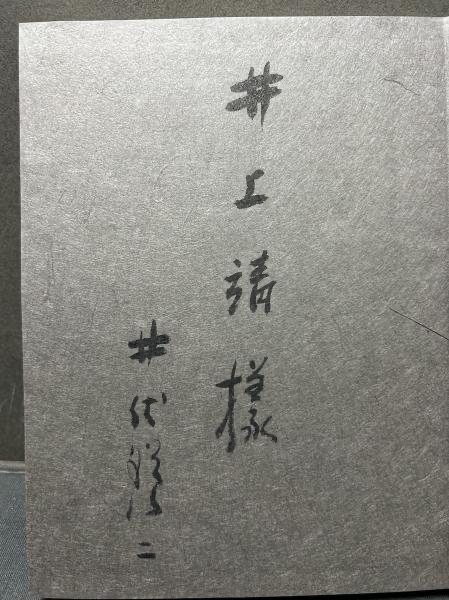 井上靖様
井伏鱒二